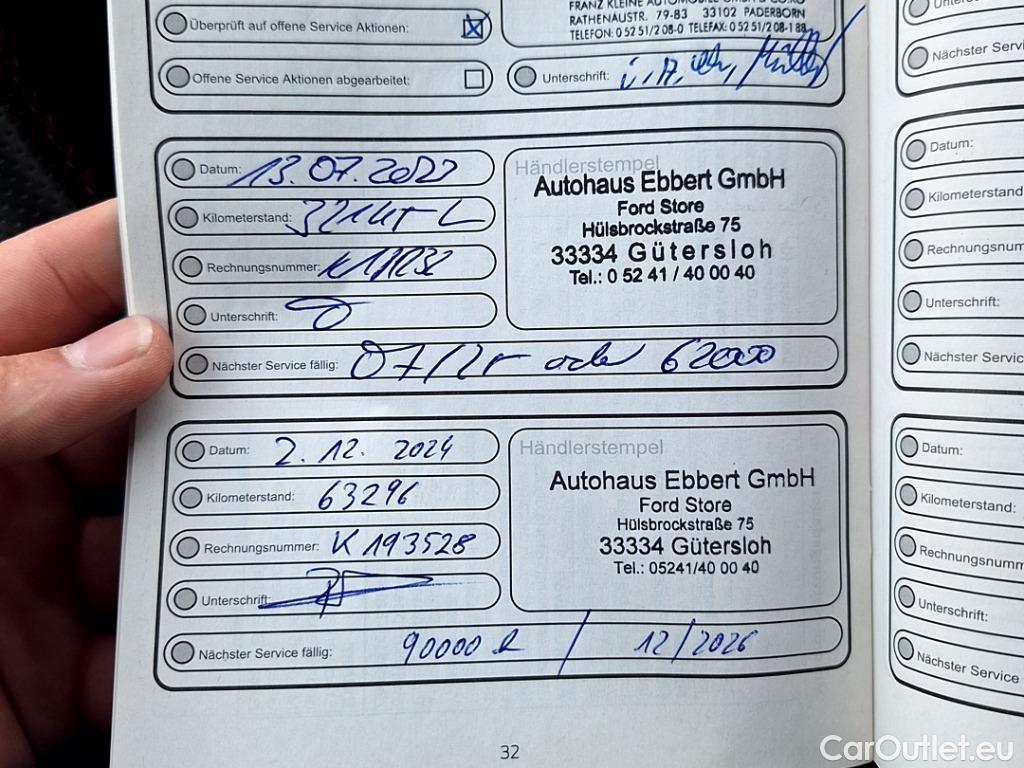 FRANZ KLEINE AUTOMOBILE GMBH & CO.KG
Überprüft auf offene Service Aktionen:
RATHENAUSTR. 79-83 33102 PADERBORN
TELEFON: 0 52 51/2 08-0 TELEFAX: 0 52 51/2 08-1 88
Offene Service Aktionen abgearbeitet:
Unterschrift:
Datum: 13.07.2022
Händlerstempel
Autohaus Ebbert GmbH
Ford Store
Hülsbrockstraße 75
33334 Gütersloh
Tel.: 0 52 41 / 40 00 40
Kilometerstand:
Rechnungsnummer:
Unterschrift:
Nächster Service fällig: 62000
Datum: 2. 12. 2024
Kilometerstand: 63296
Rechnungsnummer: K 193528
Unterschrift:
Händlerstempel
Autohaus Ebbert GmbH
Ford Store
Hülsbrockstraße 75
33334 Gütersloh
Tel.: 05241/40 00 40
Nächster Service fällig: 90000 / 12/2026
32
Nächster Servi
Datum:
Kilometerstand
Rechnungsnum
Unterschrift:
Nächster Servic
Datum:
Kilometerstand:
Rechnungsnumm
Unterschrift:
Nächster Service
CarOutlet.eu